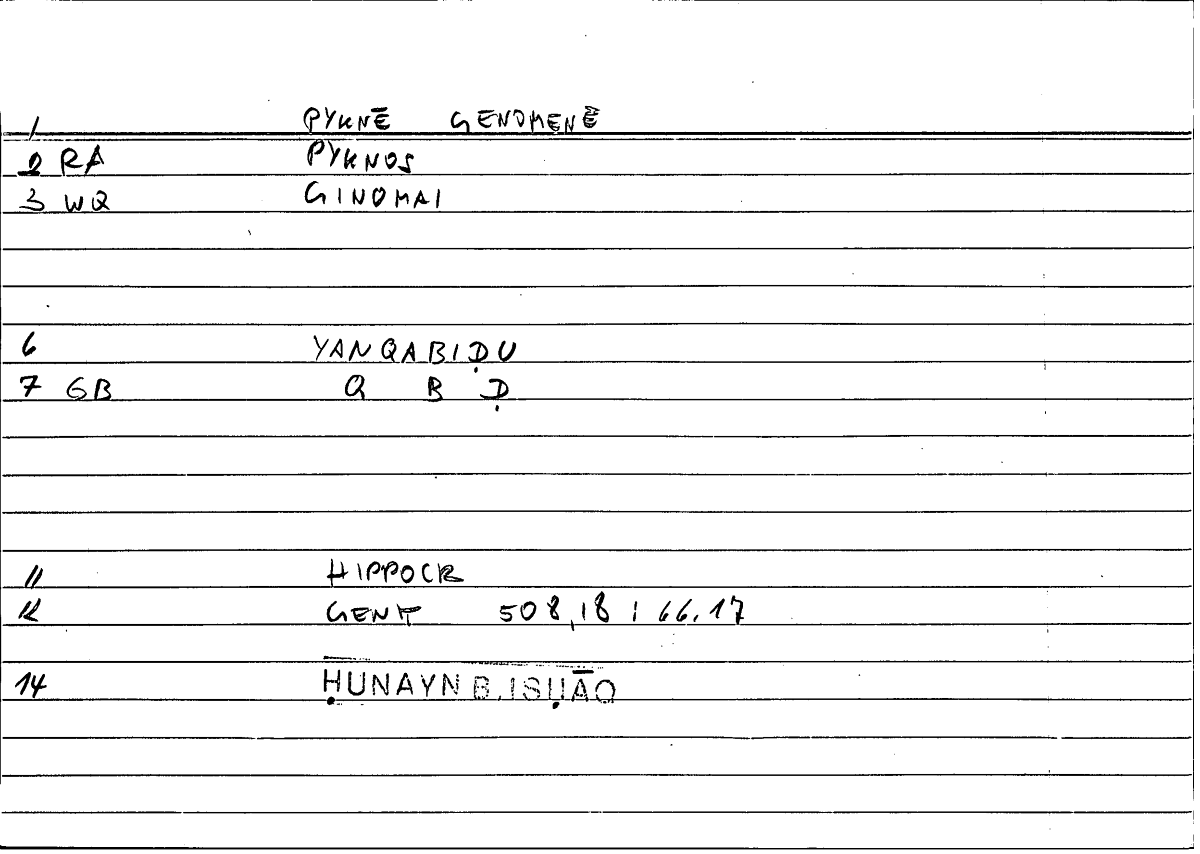 1 PYKNĒ GENOMENĒ
2 RA PYKNOS
3 WQ GINOMAI
6 YANQABIḌU
7 GB Q B Ḍ
11 HIPPOCR
12 508,18 ; 66.17
14 ḤUNAYN B. ISḤĀQ